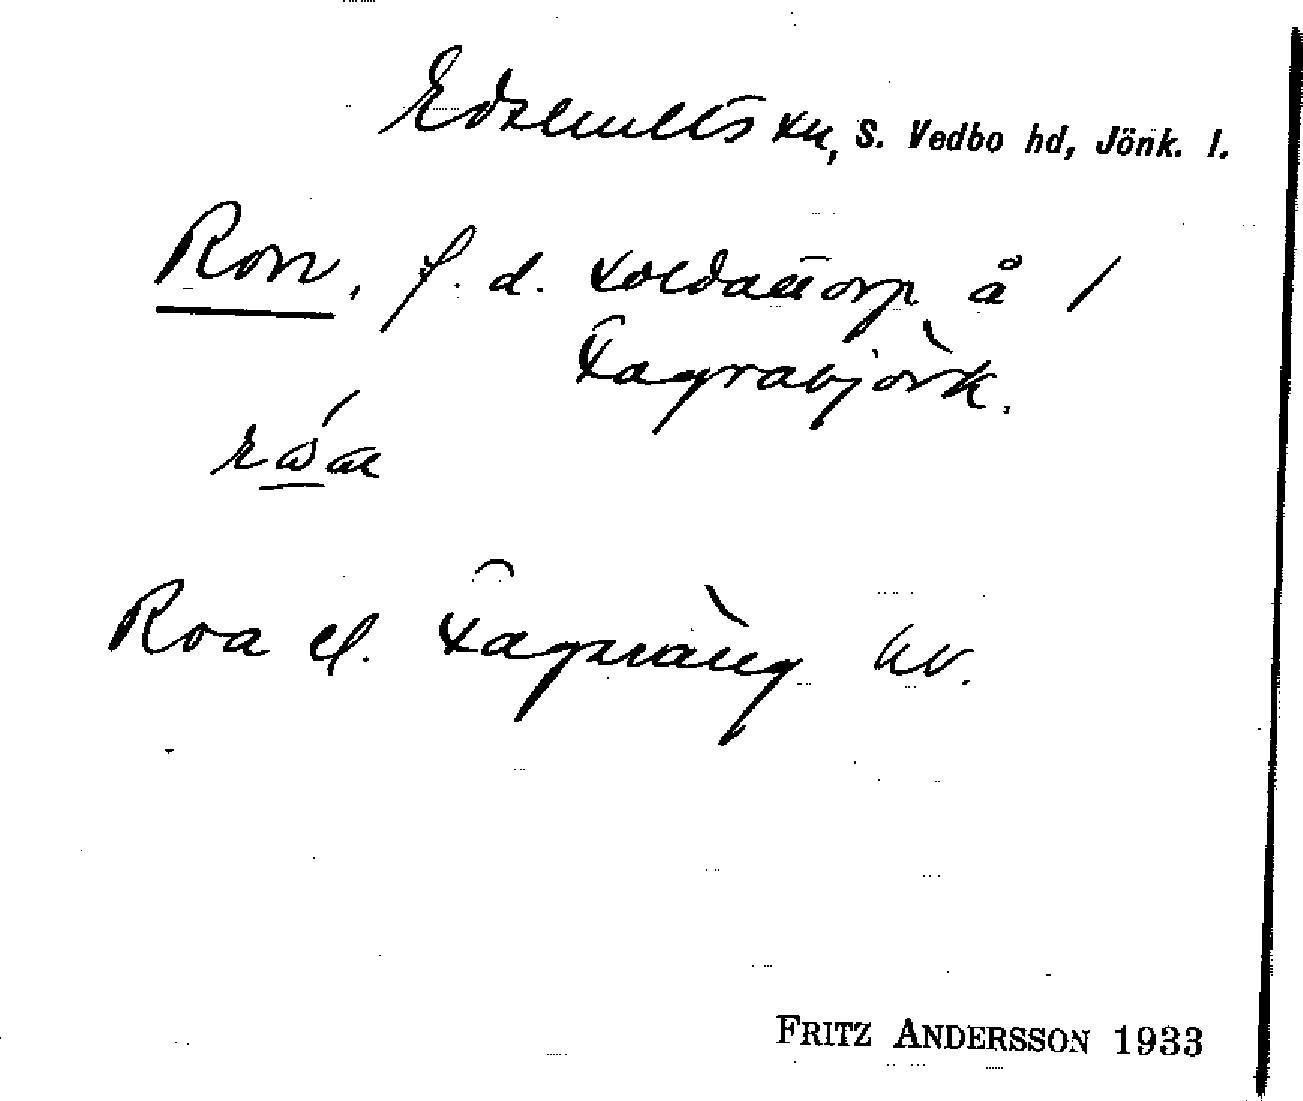 Edshults sn, S. Vedbo hd, Jönk. l.
Ron, f. d. soldattorp å /
Fagrabjörk.
Roa el. Fageräng
FRITZ ANDERSSON 1933